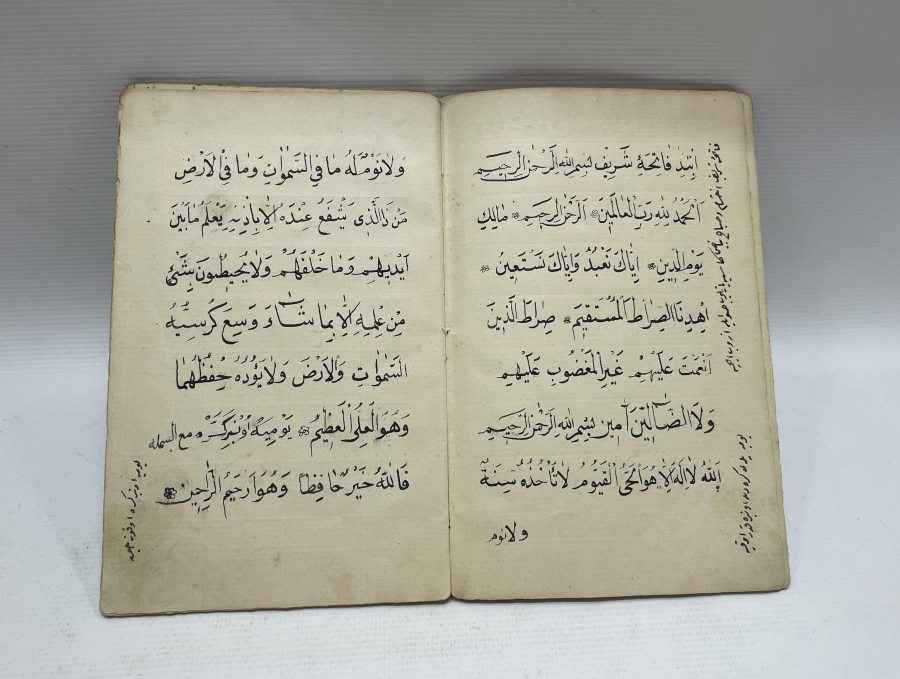 ابتدا فاتحهٔ شريف بسم الله الرحمن الرحيم
اَلْحَمْدُ لِلّٰهِ رَبِّ الْعَالَمِينَ اَلرَّحْمٰنِ الرَّحِيمِ مَالِكِ
يَوْمِ الدِّينِ اِيَّاكَ نَعْبُدُ وَاِيَّاكَ نَسْتَعِينُ
اِهْدِنَا الصِّرَاطَ الْمُسْتَقِيمَ صِرَاطَ الَّذِينَ
اَنْعَمْتَ عَلَيْهِمْ غَيْرِ الْمَغْضُوبِ عَلَيْهِمْ
وَلَا الضَّالِّينَ آمِينَ بِسْمِ اللهِ الرَّحْمٰنِ الرَّحِيمِ
اَللهُ لَا اِلٰهَ اِلَّا هُوَ الْحَيُّ الْقَيُّومُ لَا تَأْخُذُهُ سِنَةٌ
ولا نوم
وَلَا نَوْمٌ لَهُ مَا فِي السَّمٰوَاتِ وَمَا فِي الْاَرْضِ
مَنْ ذَا الَّذِي يَشْفَعُ عِنْدَهُ اِلَّا بِاِذْنِهِ يَعْلَمُ مَا بَيْنَ
اَيْدِيهِمْ وَمَا خَلْفَهُمْ وَلَا يُحِيطُونَ بِشَيْءٍ
مِنْ عِلْمِهِ اِلَّا بِمَا شَاءَ وَسِعَ كُرْسِيُّهُ
السَّمٰوَاتِ وَالْاَرْضَ وَلَا يَؤُدُهُ حِفْظُهُمَا
وَهُوَ الْعَلِيُّ الْعَظِيمُ يوميه اون بر كره مع البسمله
فَاللهُ خَيْرٌ حَافِظًا وَهُوَ اَرْحَمُ الرَّاحِمِينَ